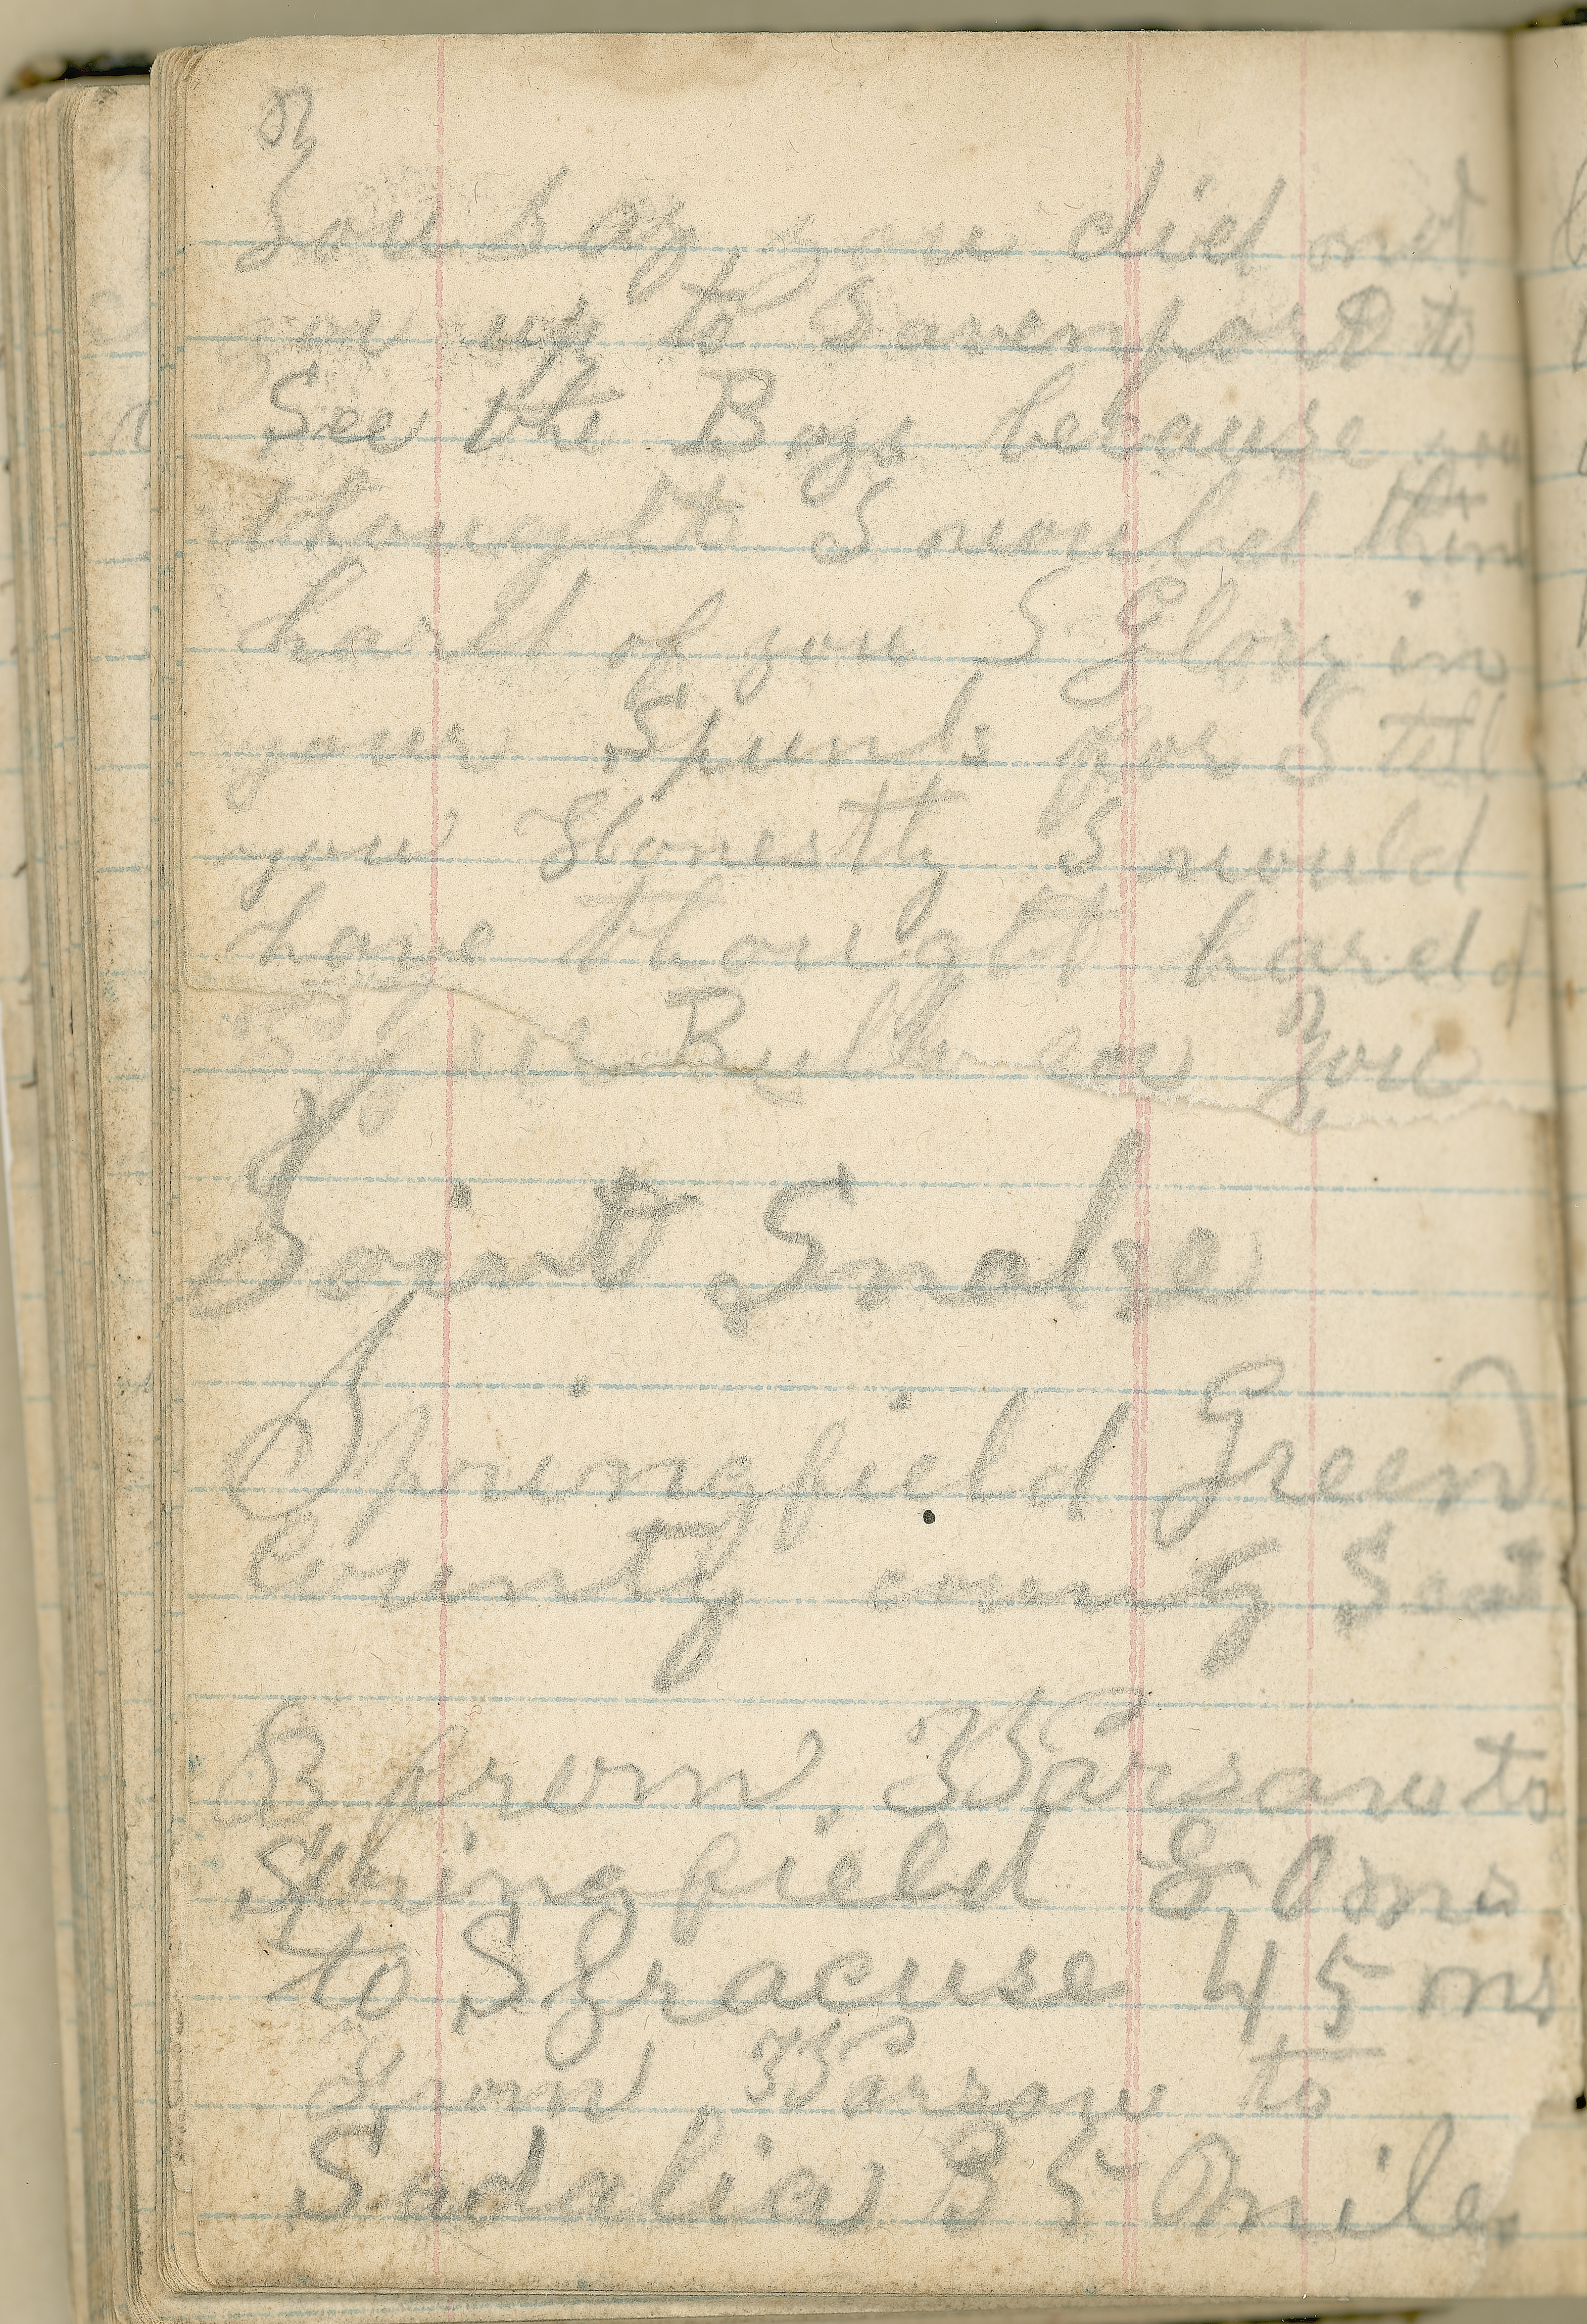 You say you did not
go up to Davenport to
See the Boys because you
thought I would think
hard of you I Glory in
your Spunk for I tell
you Honestly I would
have thought hard of
you
Joint Snake
Springfield Green
County county Seat
from Warsaw to
Springfield 80 ms
to Syracuse 45 ms
from Warsaw to
Sadalia 35 miles